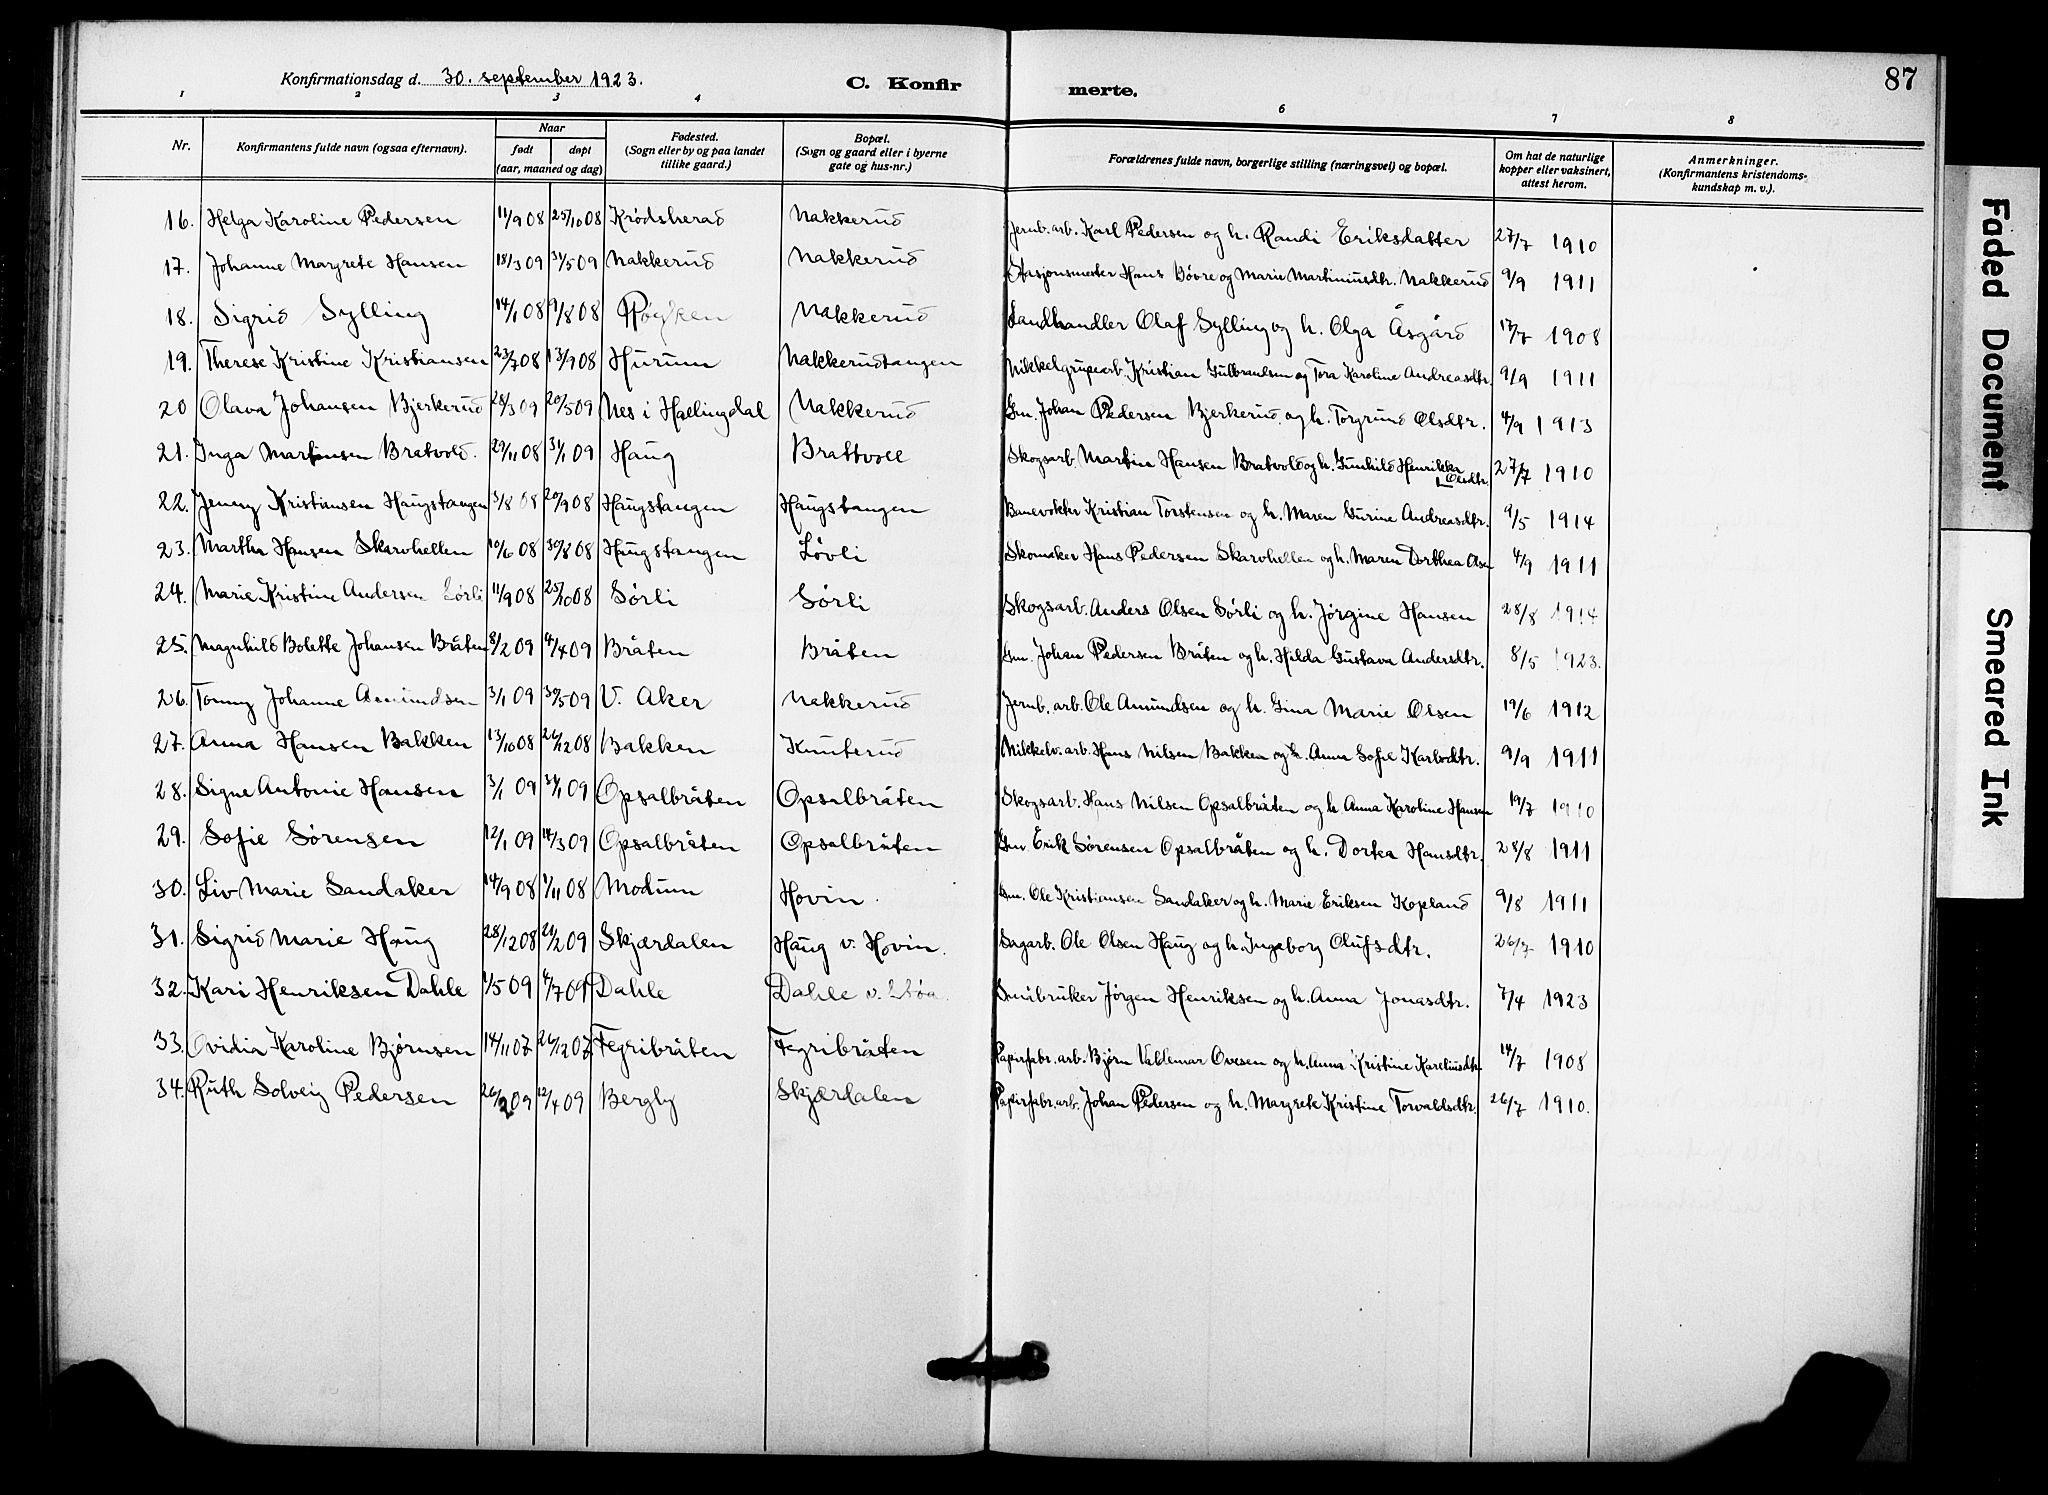 87
Konfirmationsdag d. 30. september 1923.
C. Konfir merte.
1 2 3 4 6 7 8
Nr.
Konfirmantens fulde navn (ogsaa efternavn).
Naar
født døpt
(aar, maaned og dag)
Fødested.
(Sogn eller by og paa landet
tillike gaard.)
Bopæl.
(Sogn og gaard eller i byerne
gate og hus-nr.)
Forældrenes fulde navn, borgerlige stilling (næringsvei) og bopæl.
Om hat de naturlige
kopper eller vaksinert,
attest herom.
Anmerkninger.
(Konfirmantens kristendoms-
kundskap m. v.).
16. Helga Karoline Pedersen 11/9 08 25/10 08 Krødsherad Nakkerud Jernb. arb. Karl Pedersen og h. Randi Eriksdatter 27/7 1910
17. Johanne Margrete Hansen 18/3 09 31/5 09 Nakkerud Nakkerud Stasjonsmester Hans Døvre og Marie Martiniusdtr. Nakkerud 9/9 1911
18. Sigrid Sylling 14/1 08 9/8 08 Røyken Nakkerud Landhandler Olaf Sylling og h. Olga Åsgård 17/7 1908
19. Therese Kristine Kristiansen 23/7 08 13/9 08 Hurum Nakkerudtangen Nikkelgrupearb. Kristian Gulbrandsen og Tora Karoline Andreasdtr. 9/9 1911
20 Olava Johansen Bjerkerud 28/3 09 20/5 09 Nes i Hallingdal Nakkerud Gm. Johan Pedersen Bjerkerud og h. Torgrund Olsdtr. 4/9 1913
21. Inga Martinsen Bratvold. 29/11 08 31/1 09 Haug Brattvoll Skogsarb. Martin Hansen Bratvold og h. Gunhild Henrikka Olsdtr. 27/7 1910
22. Jenny Kristiansen Haugstangen 3/8 08 20/9 08 Haugstangen Haugstangen Banevokter Kristian Torstensen og h. Maren Gurine Andreasdtr. 9/5 1914
23. Martha Hansen Skarvhellen 10/6 08 30/8 08 Haugstangen Løvli Skomaker Hans Pedersen Skarvhellen og h. Maren Dorthea Olsen 4/9 1911
24. Marie Kristine Andersen Sørli 11/9 08 25/10 08 Sørli Sørli Skogsarb. Anders Olsen Sørli og h. Jørgine Hansen 28/8 1914
25. Magnhild Bolette Johansen Bråten 8/2 09 4/4 09 Bråten Bråten Gm. Johan Pedersen Bråten og h. Hilda Gustava Andersdtr. 8/5 1923.
26. Tonny Johanne Amundsen 3/1 09 30/5 09 V. Aker Nakkerud Jernb. arb. Ole Amundsen og h. Gina Marie Olsen 19/6 1912
27. Anna Hansen Bakken 13/10 08 26/12 08 Bakken Knuterud Nikkelv. arb. Hans Nilsen Bakken og h. Anna Sofie Karlsdtr. 9/9 1911
28. Signe Antonie Hansen 3/1 09 31/1 09 Opsalbråten Opsalbråten Skogsarb. Hans Nilsen Opsalbråten og h. Anna Karoline Hansen 19/7 1910
29. Sofie Sørensen 12/1 09 14/3 09 Opsalbråten Opsalbråten Gm Erik Sørensen Opsalbråten og h. Dortea Hansdtr. 28/8 1911
30. Liv Marie Sandaker 14/9 08 1/11 08 Modum Hovin. Gm. Ole Kristiansen Sandaker og h. Marie Eriksen Kopland 9/8 1911
31. Sigrid Marie Haug 28/12 08 21/2 09 Skjærdalen Haug v. Hovin. Sagarb. Ole Olsen Haug og h. Ingeborg Olufsdtr. 26/7 1910
32. Kari Henriksen Dahle 1/5 09 4/7 09 Dahle Dahle v. Småbruker Jørgen Henriksen og h. Anna Jonasdtr. 7/4 1923
33. Ovidia Karoline Bjørnsen 14/11 07 26/12 07 Fegribråten Fegribråten Papirfabr. arb. Bjørn Valdemar Ovesen og h. Anna Kristine Kareliusdtr. 14/7 1908
34. Ruth Solveig Pedersen 26/2 09 12/4 09 Bergly Skjærdalen Papirfabr. arb. Johan Pedersen og h. Margrete Kristine Torvaldsdtr. 26/7 1910.
Faded Document
Smeared Ink